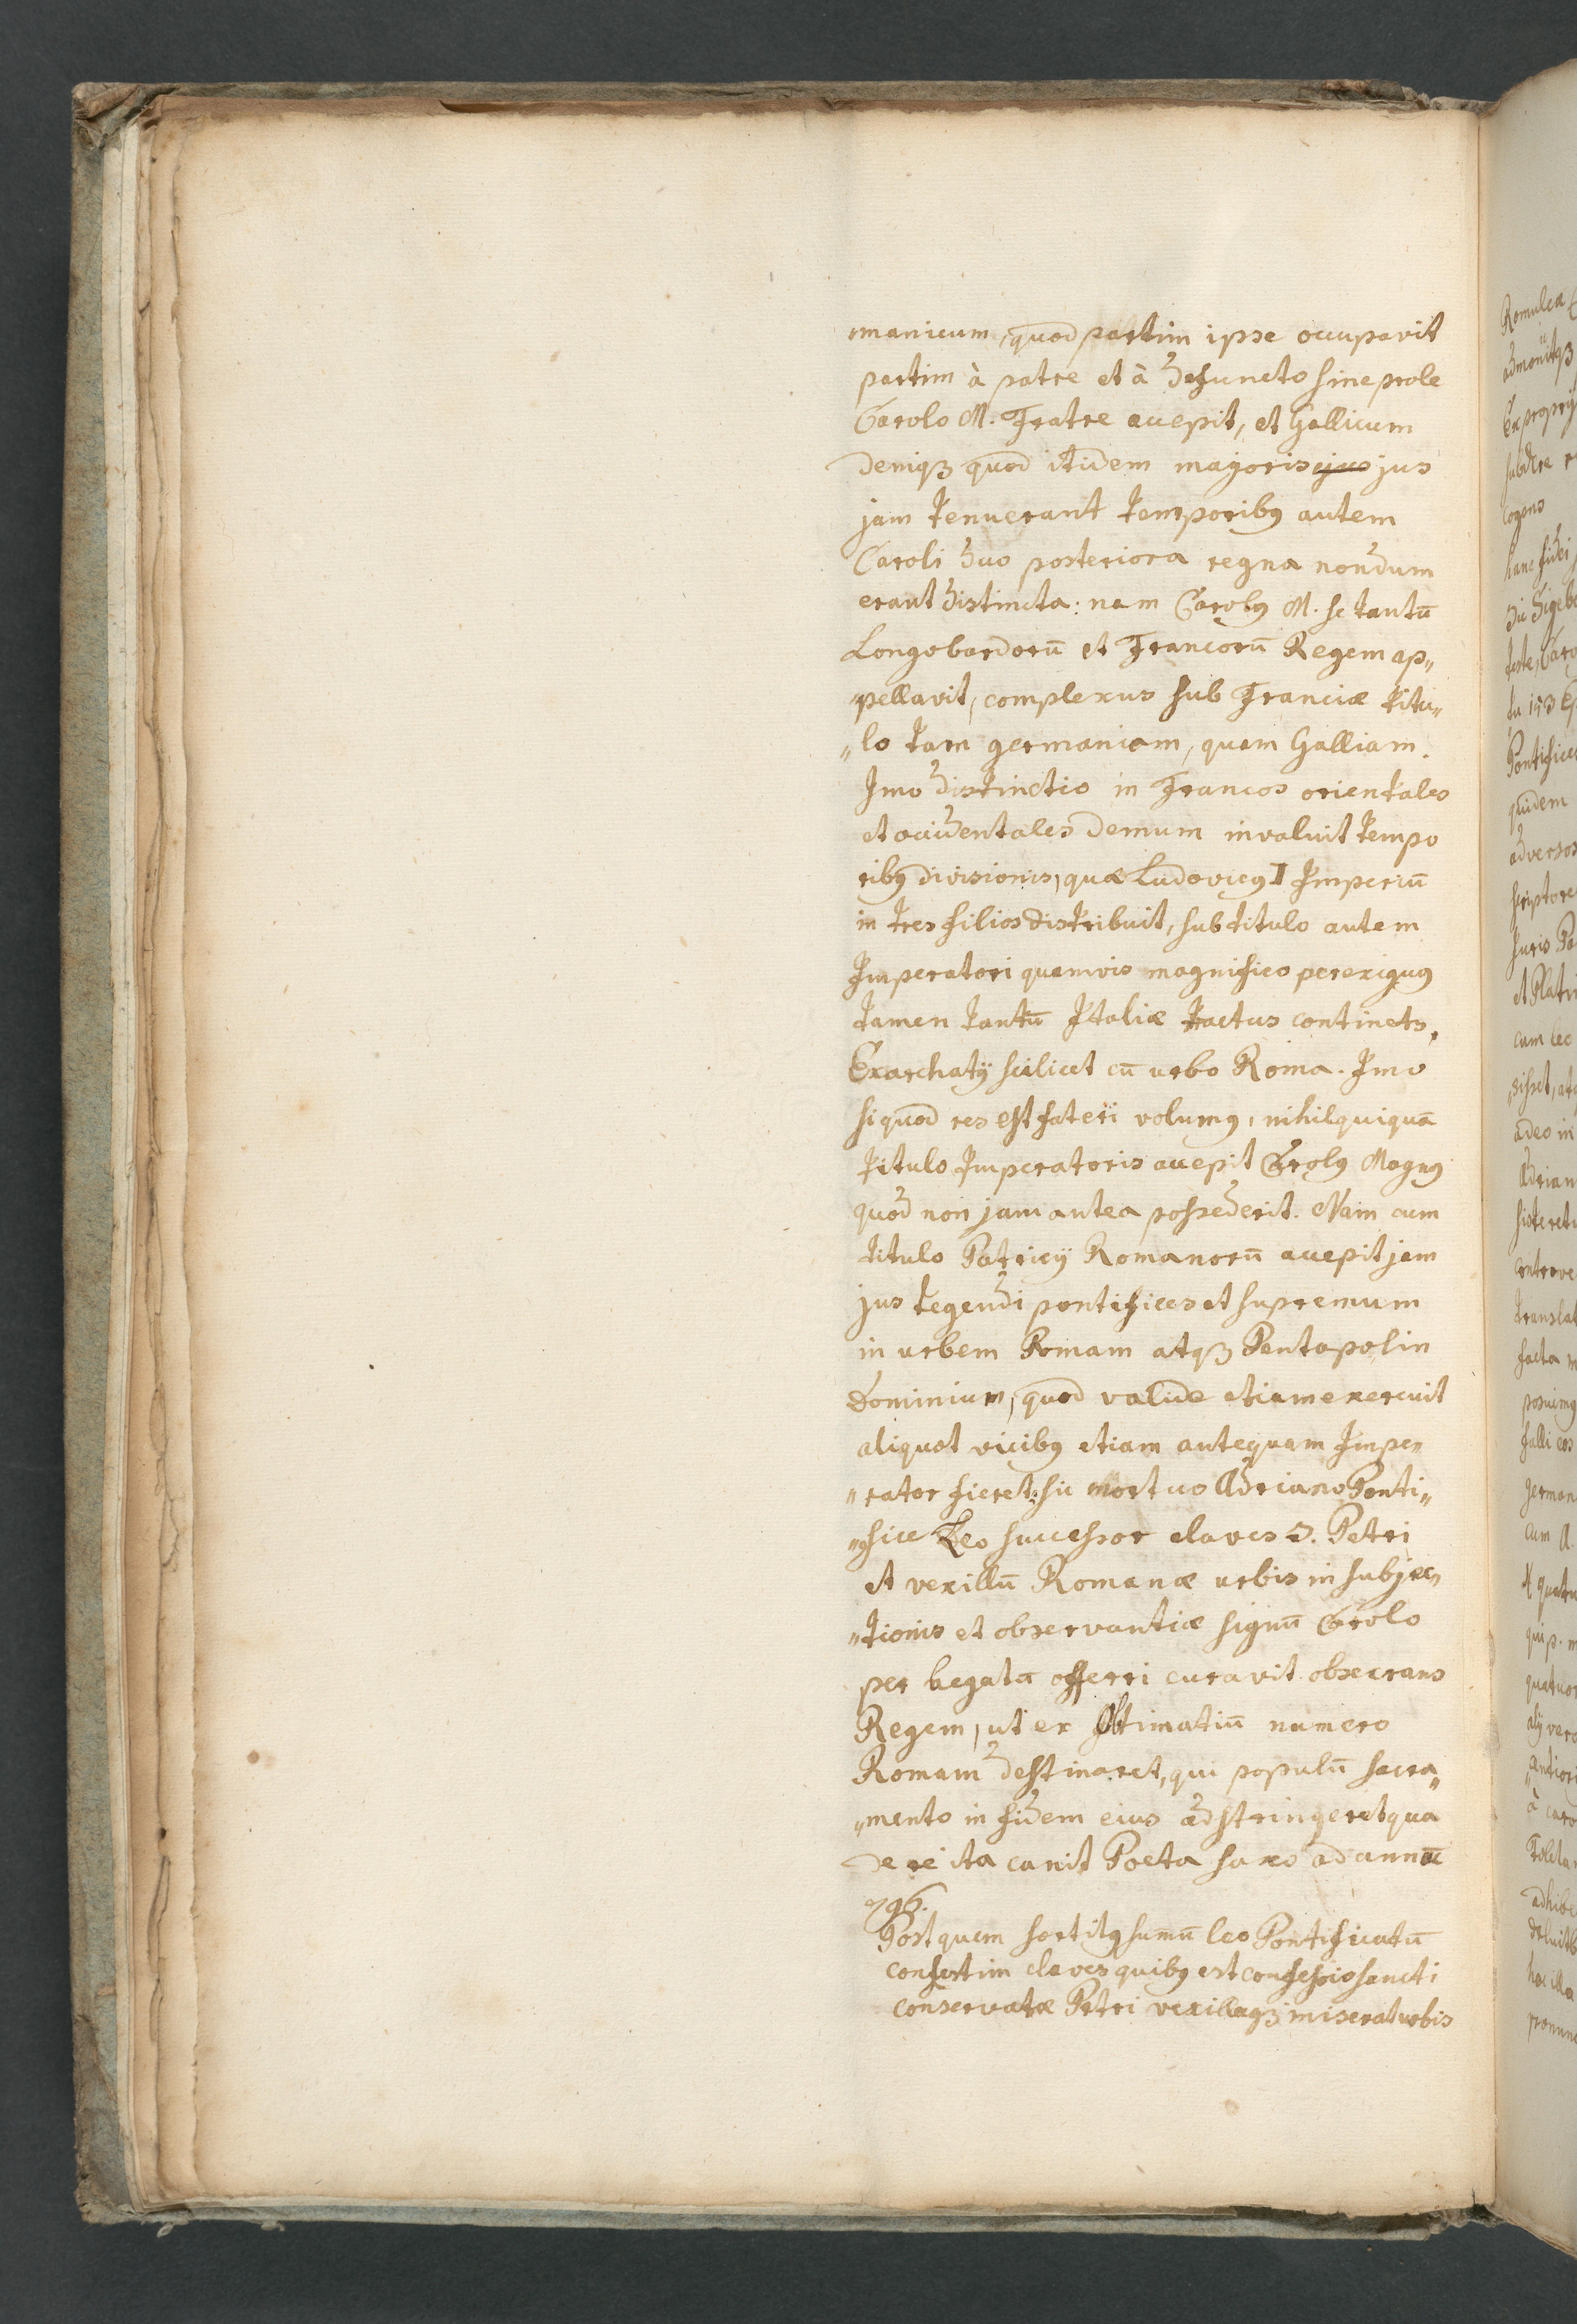 manicum, quod partim ipse occupavit
partim à patre et à defuncto sine prole
Carolo M. Fratre accepit, et Gallicum
deniqȝ quod itidem majoris ejus jus
jam tenuerant temporibꝰ autem
Caroli duo posteriora regna nondum
erant distincta: nam Carolꝰ M. se tantū
Longobardorū et Francorū Regem ap„
pellavit, complexus sub Franciæ titu„
„lo tam germaniam, quam Galliam.
Imo distinctio in Francos orientales
et occidentales demum invaluit tempo
ribꝰ divisionis, qua Ludovicꝰ I Imperiū
in tres filios distribuit, sub titulo autem
Imperatori quamvis magnifico perexiguꝰ
tamen tantū Italiæ tractus continets,
Exarchatꝰ scilicet cū urbe Roma. Imo
si quod res est fateri volumꝰ, nihil quiquā
titulo Imperatoris accepit Carolꝰ Magnꝰ
quod non jam antea possederit. Nam cum
titulo Patricij Romanorū accepit jam
jus tegendi pontifices et supremum
in urbem Romam atqȝ Pentapolin
Dominium, quod valide etiam exercuit
aliquot vicibꝰ etiam antequam Impe„
„rator fieret: sic mortuo Adriano Ponti„
„fice Leo successor claves S. Petri
et vexillū Romanæ urbis in subjec„
„tionis et observantiæ signū Carolo
per legatū offerri curavit obsecrans
Regem, ut ex Obtimatiū numero
Romam destinaret, qui populū sacra„
„mento in fidem eius adstringeret qua
de re ita canit Poeta saxo ad annū
796.
Post quem sortitꝰ sumū leo Pontificatū
confestim claves quibꝰ est confessio sancti
conservatæ Petri vexillaqȝ miserat urbis
Romulea
admonitqȝ
Ex proprijs
subdere
cogens
hanc fidei
Pontifices
quidem
adversos
scriptores
cum leo
adeo in
germani
quatuor
adhibe
hac illa